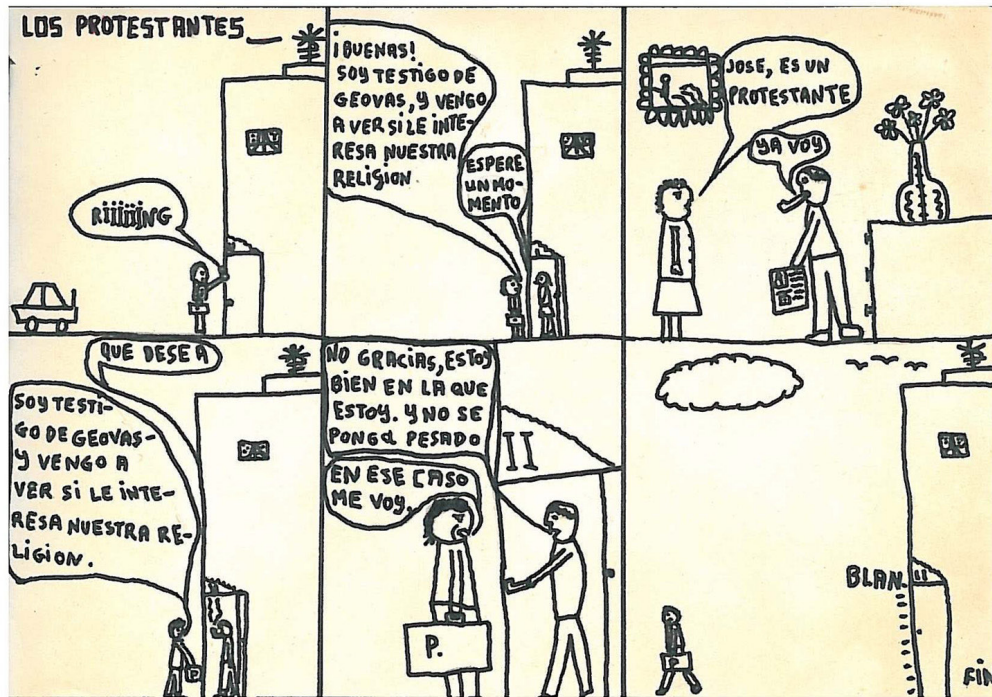 LOS PROTESTANTES
RIIIIING
¡BUENAS!
SOY TESTIGO DE
GEOVAS, Y VENGO
A VER SI LE INTE-
RESA NUESTRA
RELIGION.
ESPERE
UN MO-
MENTO
JOSE, ES UN
PROTESTANTE
YA VOY
QUE DESEA
SOY TESTI-
GO DE GEOVAS-
Y VENGO A
VER SI LE INTE-
RESA NUESTRA RE-
LIGION.
P
NO GRACIAS, ESTOY
BIEN EN LA QUE
ESTOY. Y NO SE
PONGA PESADO
EN ESE CASO
ME VOY.
P.
II
BLAN.
P
FIN